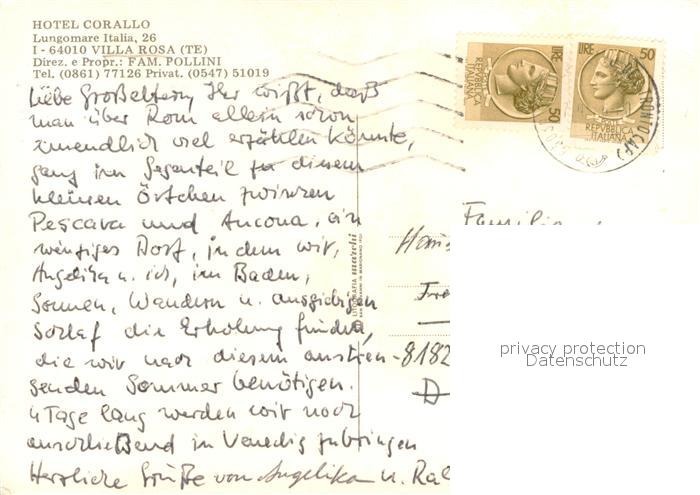 HOTEL CORALLO
Lungomare Italia, 26
I - 64010 VILLA ROSA (TE)
Direz. e Propr.: FAM. POLLINI
Tel. (0861) 77126 Privat. (0547) 51019
Liebe Großeltern, Ihr wißt, daß
man über Rom allein schon
unendlich viel erzählen könnte,
ganz im Gegenteil zu diesem
kleinen Örtchen zwischen
Pescara und Ancona, ein
winziges Dorf, in dem wir,
Angelika u. ich, im Baden,
Sonnen, Wandern u. ausgiebigen
Schlaf die Erholung finden,
die wir nach diesem anstren-
genden Sommer benötigen.
4 Tage lang werden wir noch
anschließend in Venedig zubringen
Herzliche Grüße von Angelika u. Ral
LIRE 50
REPVBBLICA
ITALIANA
LIRE 50
REPVBBLICA
ITALIANA
LITOGRAFIA marchi
Familie
Hans
Fre
8182
D
privacy protection
Datenschutz